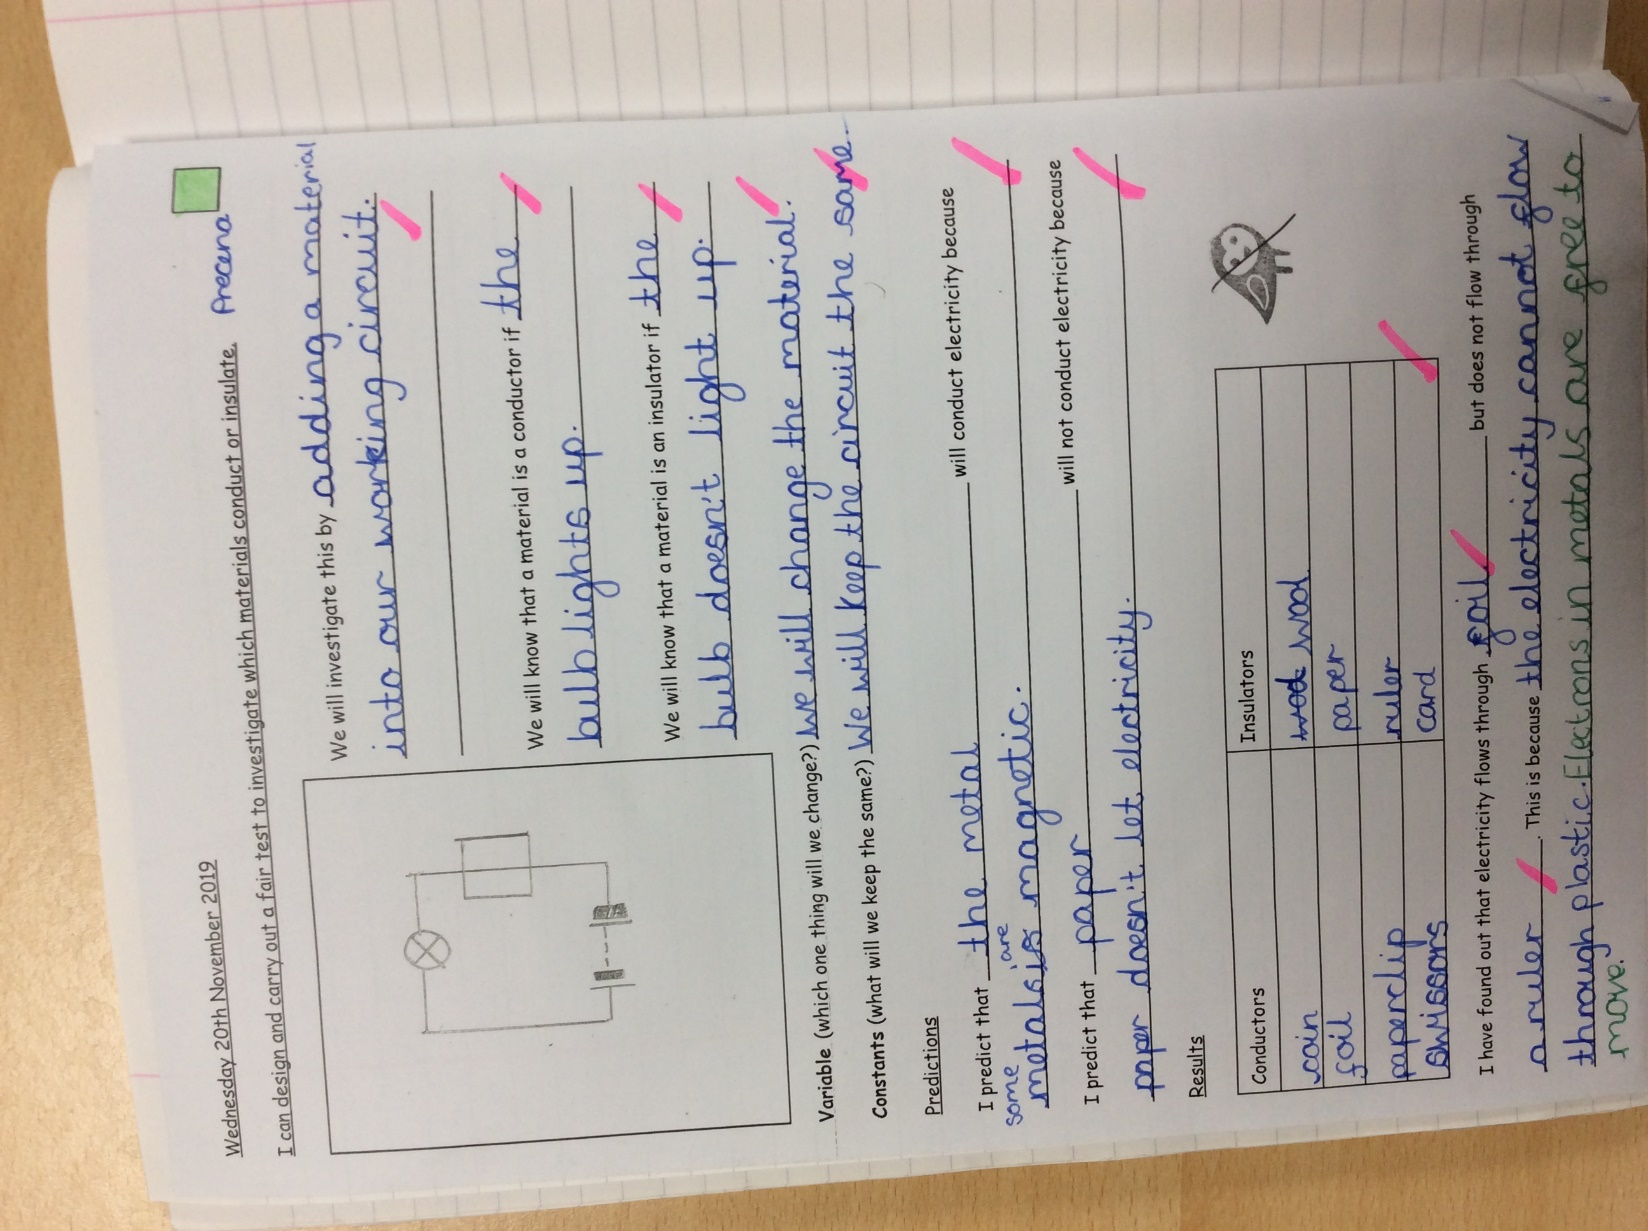 Wednesday 20th November 2019
Precena
I can design and carry out a fair test to investigate which materials conduct or insulate.
We will investigate this by adding a material
into our working circuit.
We will know that a material is a conductor if the
bulb lights up.
We will know that a material is an insulator if the
bulb doesn't light up.
Variable (which one thing will we change?) We will change the material.
Constants (what will we keep the same?) We will keep the circuit the same.
Predictions
I predict that the metal will conduct electricity because
some are
metals is magnetic.
I predict that paper will not conduct electricity because
paper doesn't let electricity.
Results
Conductors Insulators
coin wod wood
foil paper
paperclip ruler
scissors card
I have found out that electricity flows through foil but does not flow through
a ruler. This is because the electricity cannot flow
through plastic. Electrons in metals are free to
move.